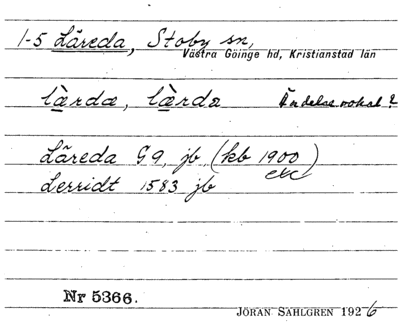 1-5 Läreda, Stoby sn,
Västra Göinge hd, Kristianstad län
lærdæ, lærda Ändelsevokal?
Läreda G9, jb (kb 1900) etc
Lerridt 1583 jb
Nr 5366.
JÖRAN SAHLGREN 1926